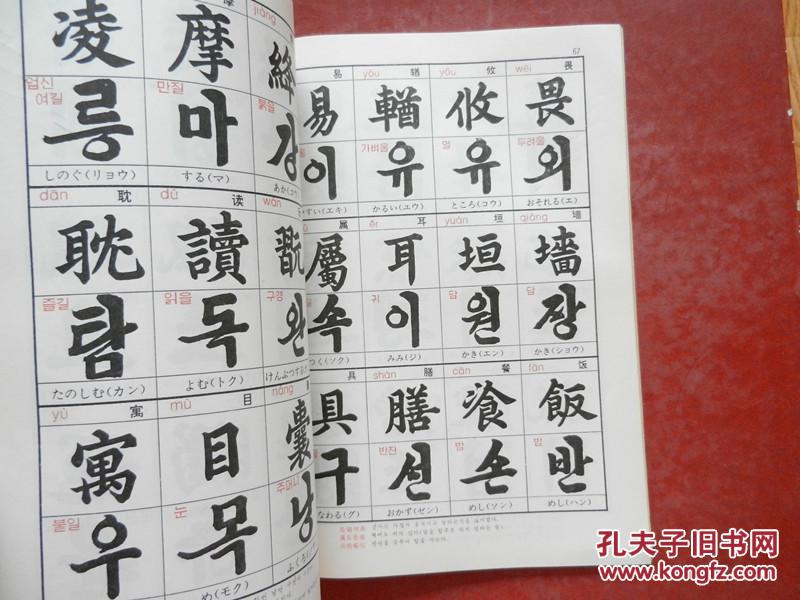 摩
jiàng
凌 摩 絳
업신여길 만질 붉을
릉 마 강
しのぐ(リョウ) する(マ) あか(コウ)
dān 耽 dú 读 wán
耽 讀 翫
즐길 읽을 구경
탐 독 완
たのしむ(カン) よむ(トク)
yù 寓 mù 目 náng
寓 目 囊
붙일 눈 주머니
우 목 낭
め(モク)
67
易 yóu 輶 yōu 攸 wèi 畏
易 輶 攸 畏
가벼울 두려울
이 유 유 외
やすい(エキ) かるい(ユウ) ところ(コウ) おそれる(エ)
属 ěr 耳 yuán 垣 qiáng 墙
屬 耳 垣 墻
귀 담 담
속 이 원 장
つく(ソク) みみ(ジ) かき(エン) かき(ショウ)
具 shàn 膳 cān 餐 fàn 饭
具 膳 飡 飯
반찬 밥 밥
구 선 손 반
そなわる(グ) おかず(ゼン) めし(ソン) めし(ハン)
孔夫子旧书网
www.kongfz.com